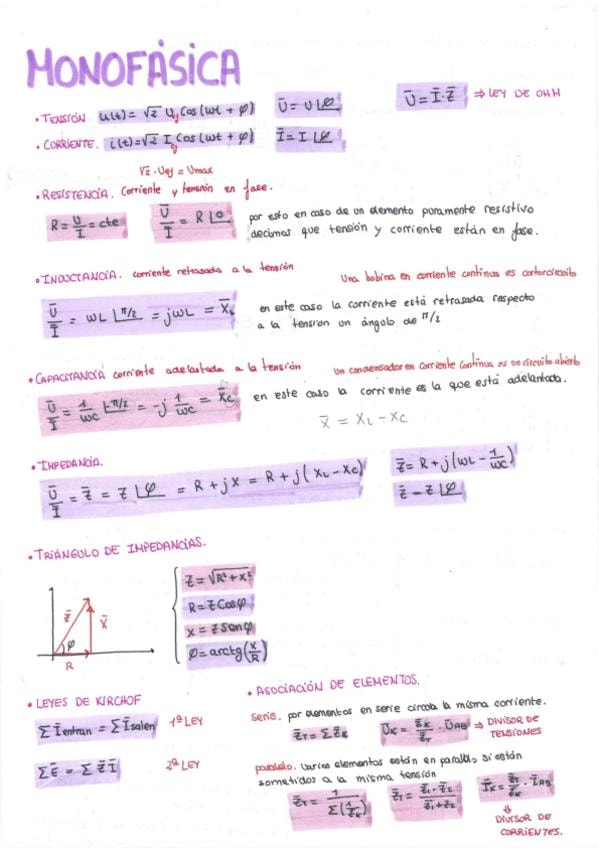 MONOFÁSICA
• TENSIÓN u(t) = √2 Uef Cos (wt + φ) Ū = U∠φ Ū = Ī·Z̄ ⇒ LEY DE OHM
• CORRIENTE. i(t) = √2 Ief Cos (wt + φ) Ī = I∠φ
√2 · Uef = Umax
• RESISTENCIA. Corriente y tensión en fase.
R = U/I = cte Ū/Ī = R∠0 por esto en caso de un elemento puramente resistivo
decimos que tensión y corriente están en fase.
• INDUCTANCIA. corriente retrasada a la tensión Una bobina en corriente continua es cortorcircuito
Ū/Ī = wL∠π/2 = jwL = X̄L en este caso la corriente está retrasada respecto
a la tensión un ángulo de π/2
• CAPACITANCIA corriente adelantada a la tensión un condensador en corriente continua es un circuito abierto
Ū/Ī = 1/wC ∠-π/2 = -j 1/wC = X̄C en este caso la corriente es la que está adelantada.
X̄ = XL - XC
• IMPEDANCIA.
Ū/Ī = Z̄ = Z∠φ = R + jX = R + j(XL - XC) Z̄ = R + j(wL - 1/wC)
Z̄ = Z∠φ
• TRIÁNGULO DE IMPEDANCIAS.
Z̄ X̄ φ R
Z = √R² + X²
R = Z Cosφ
X = Z Senφ
φ = arctg(X/R)
• LEYES DE KIRCHOF
ΣĪentran = ΣĪsalen 1ª LEY
ΣĒ = ΣZ̄Ī 2ª LEY
• ASOCIACIÓN DE ELEMENTOS.
serie. por elementos en serie circula la misma corriente.
Z̄T = ΣZ̄K ŪK = Z̄K/Z̄T · ŪAB ⇒ DIVISOR DE TENSIONES
paralelo. Varios elementos están en paralelo si están
sometidos a la misma tensión
Z̄T = 1/Σ(1/Z̄K) Z̄T = Z̄1·Z̄2/Z̄1+Z̄2 ĪK = Z̄T/Z̄K · ĪAB
⇓
DIVISOR DE
CORRIENTES.